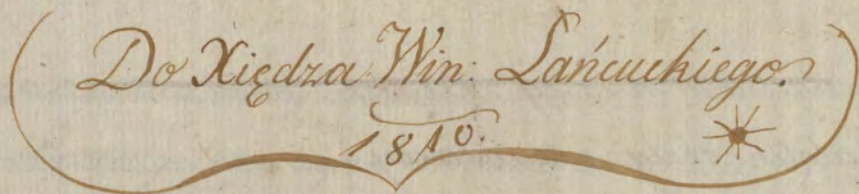 Do Xiędza Win: Łańcuckiego.
1810.